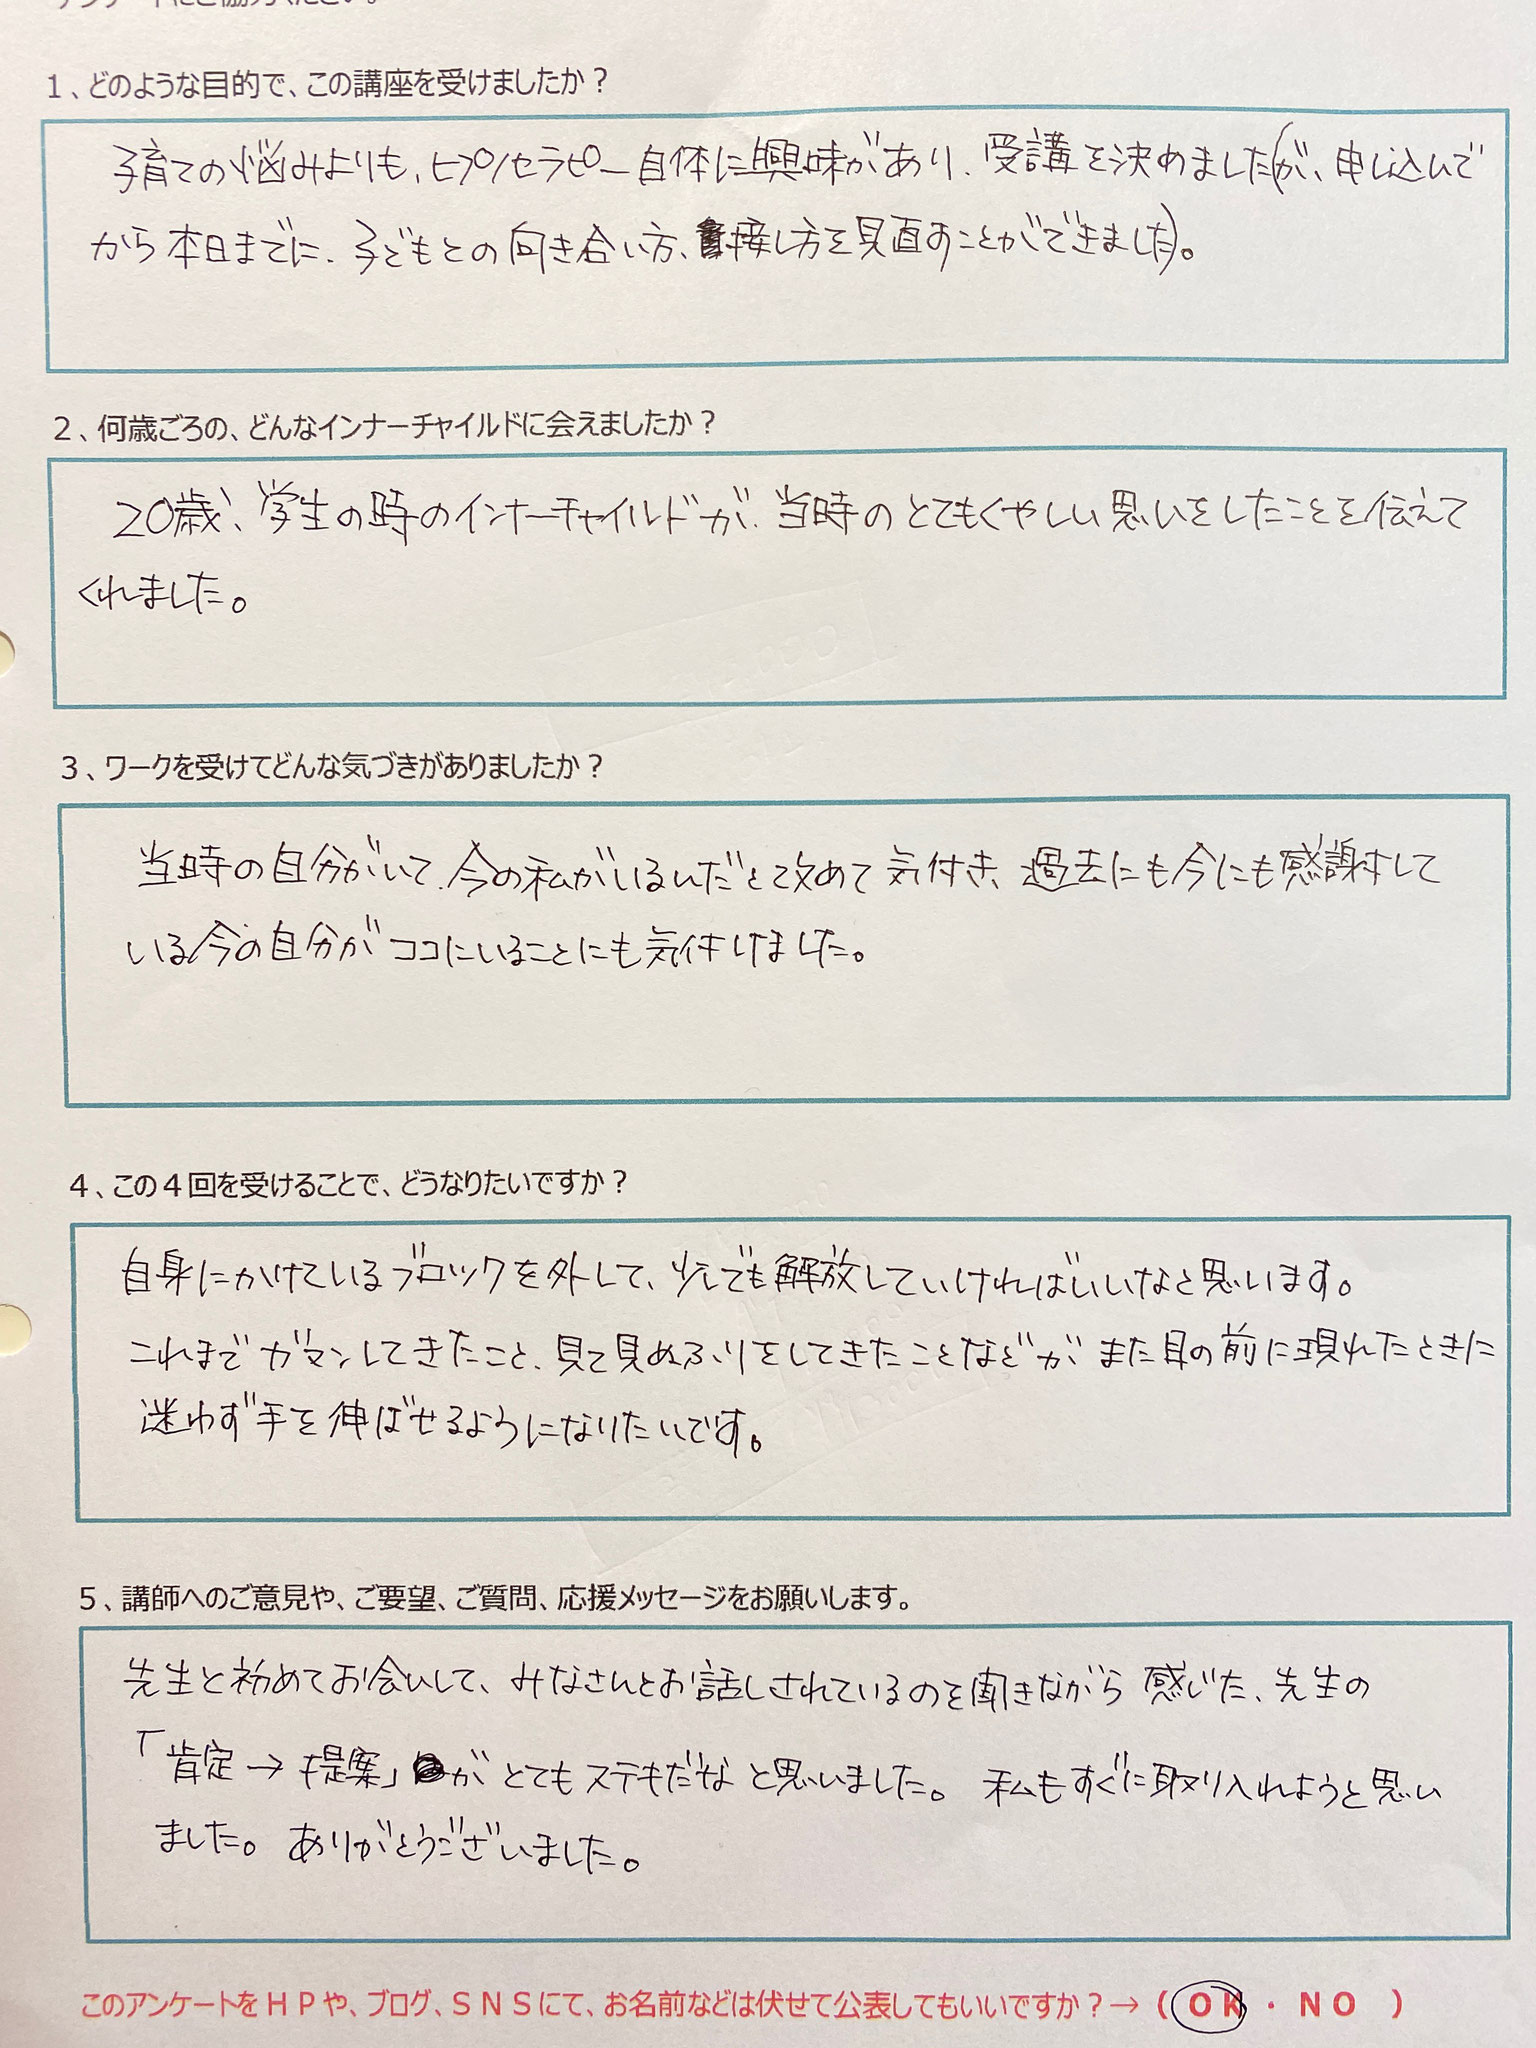 アンケートにご協力ください。
1、どのような目的で、この講座を受けましたか？
子育ての悩みよりも、ヒプノセラピー自体に興味があり、受講を決めました(が、申し込んで
から本日までに、子どもとの向き合い方、接し方を見直すことができました)。
2、何歳ごろの、どんなインナーチャイルドに会えましたか？
20歳、学生の時のインナーチャイルドが、当時のとてもくやしい思いをしたことを伝えて
くれました。
3、ワークを受けてどんな気づきがありましたか？
当時の自分がいて、今の私がいるんだと改めて気付き、過去にも今にも感謝して
いる今の自分がココにいることにも気付けました。
4、この4回を受けることで、どうなりたいですか？
自身にかけているブロックを外して、少しでも解放していければいいなと思います。
これまでガマンしてきたこと、見て見ぬふりをしてきたことなどがまた目の前に現れたときに
迷わず手を伸ばせるようになりたいです。
5、講師へのご意見や、ご要望、ご質問、応援メッセージをお願いします。
先生と初めてお会いして、みなさんとお話しされているのを聞きながら感じた、先生の
「肯定→提案」がとてもステキだなと思いました。私もすぐに取り入れようと思い
ました。ありがとうございました。
このアンケートをHPや、ブログ、SNSにて、お名前などは伏せて公表してもいいですか？→（OK・NO）